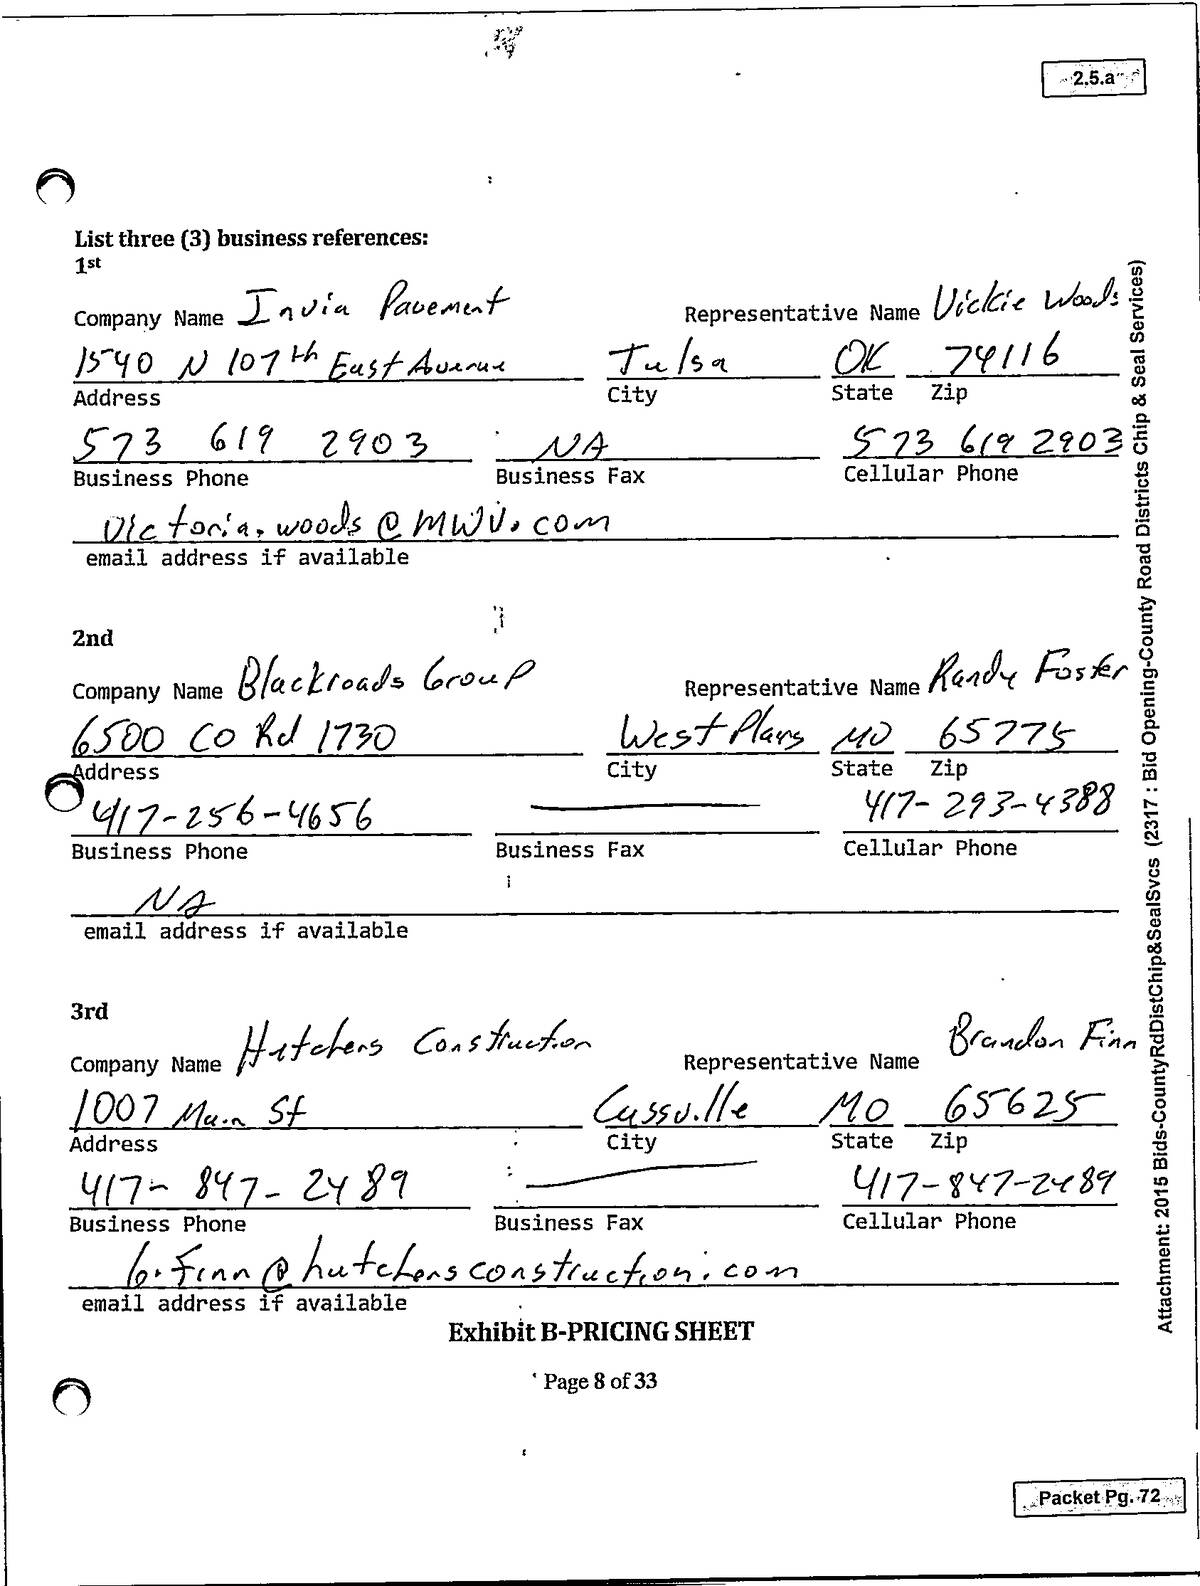 2.5.a
List three (3) business references:
1st
Company Name Invia Pavement Representative Name Vickie Woods
1540 N 107th East Avenue Tulsa OK 74116
Address City State Zip
573 619 2903 NA 573 619 2903
Business Phone Business Fax Cellular Phone
victoria.woods@MWV.com
email address if available
2nd
Company Name Blackroads Group Representative Name Randy Foster
6500 CO Rd 1730 West Plains MO 65775
Address City State Zip
417-256-4656 417-293-4388
Business Phone Business Fax Cellular Phone
NA
email address if available
3rd
Company Name Hutchens Construction Representative Name Brandon Finn
1007 Main St Cassville MO 65625
Address City State Zip
417-847-2489 417-847-2489
Business Phone Business Fax Cellular Phone
b.finn@hutchensconstruction.com
email address if available
Exhibit B-PRICING SHEET
Page 8 of 33
Attachment: 2015 Bids-CountyRdDistChip&SealSvcs (2317 : Bid Opening-County Road Districts Chip & Seal Services)
Packet Pg. 72